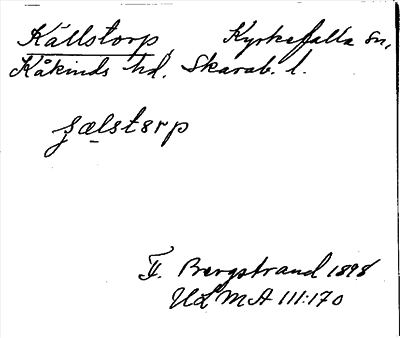 Källstorp, Kyrkefalla sn,
Kåkinds hd. Skarab. l.
Jælstorp
F. Bergstrand 1898
ULMA 111:170